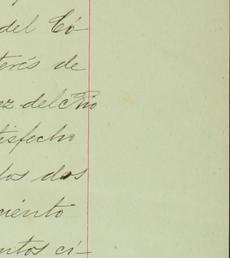 del Có
terés de
ez del Rio
tisfecho
dos dos
ciento
entos ci-